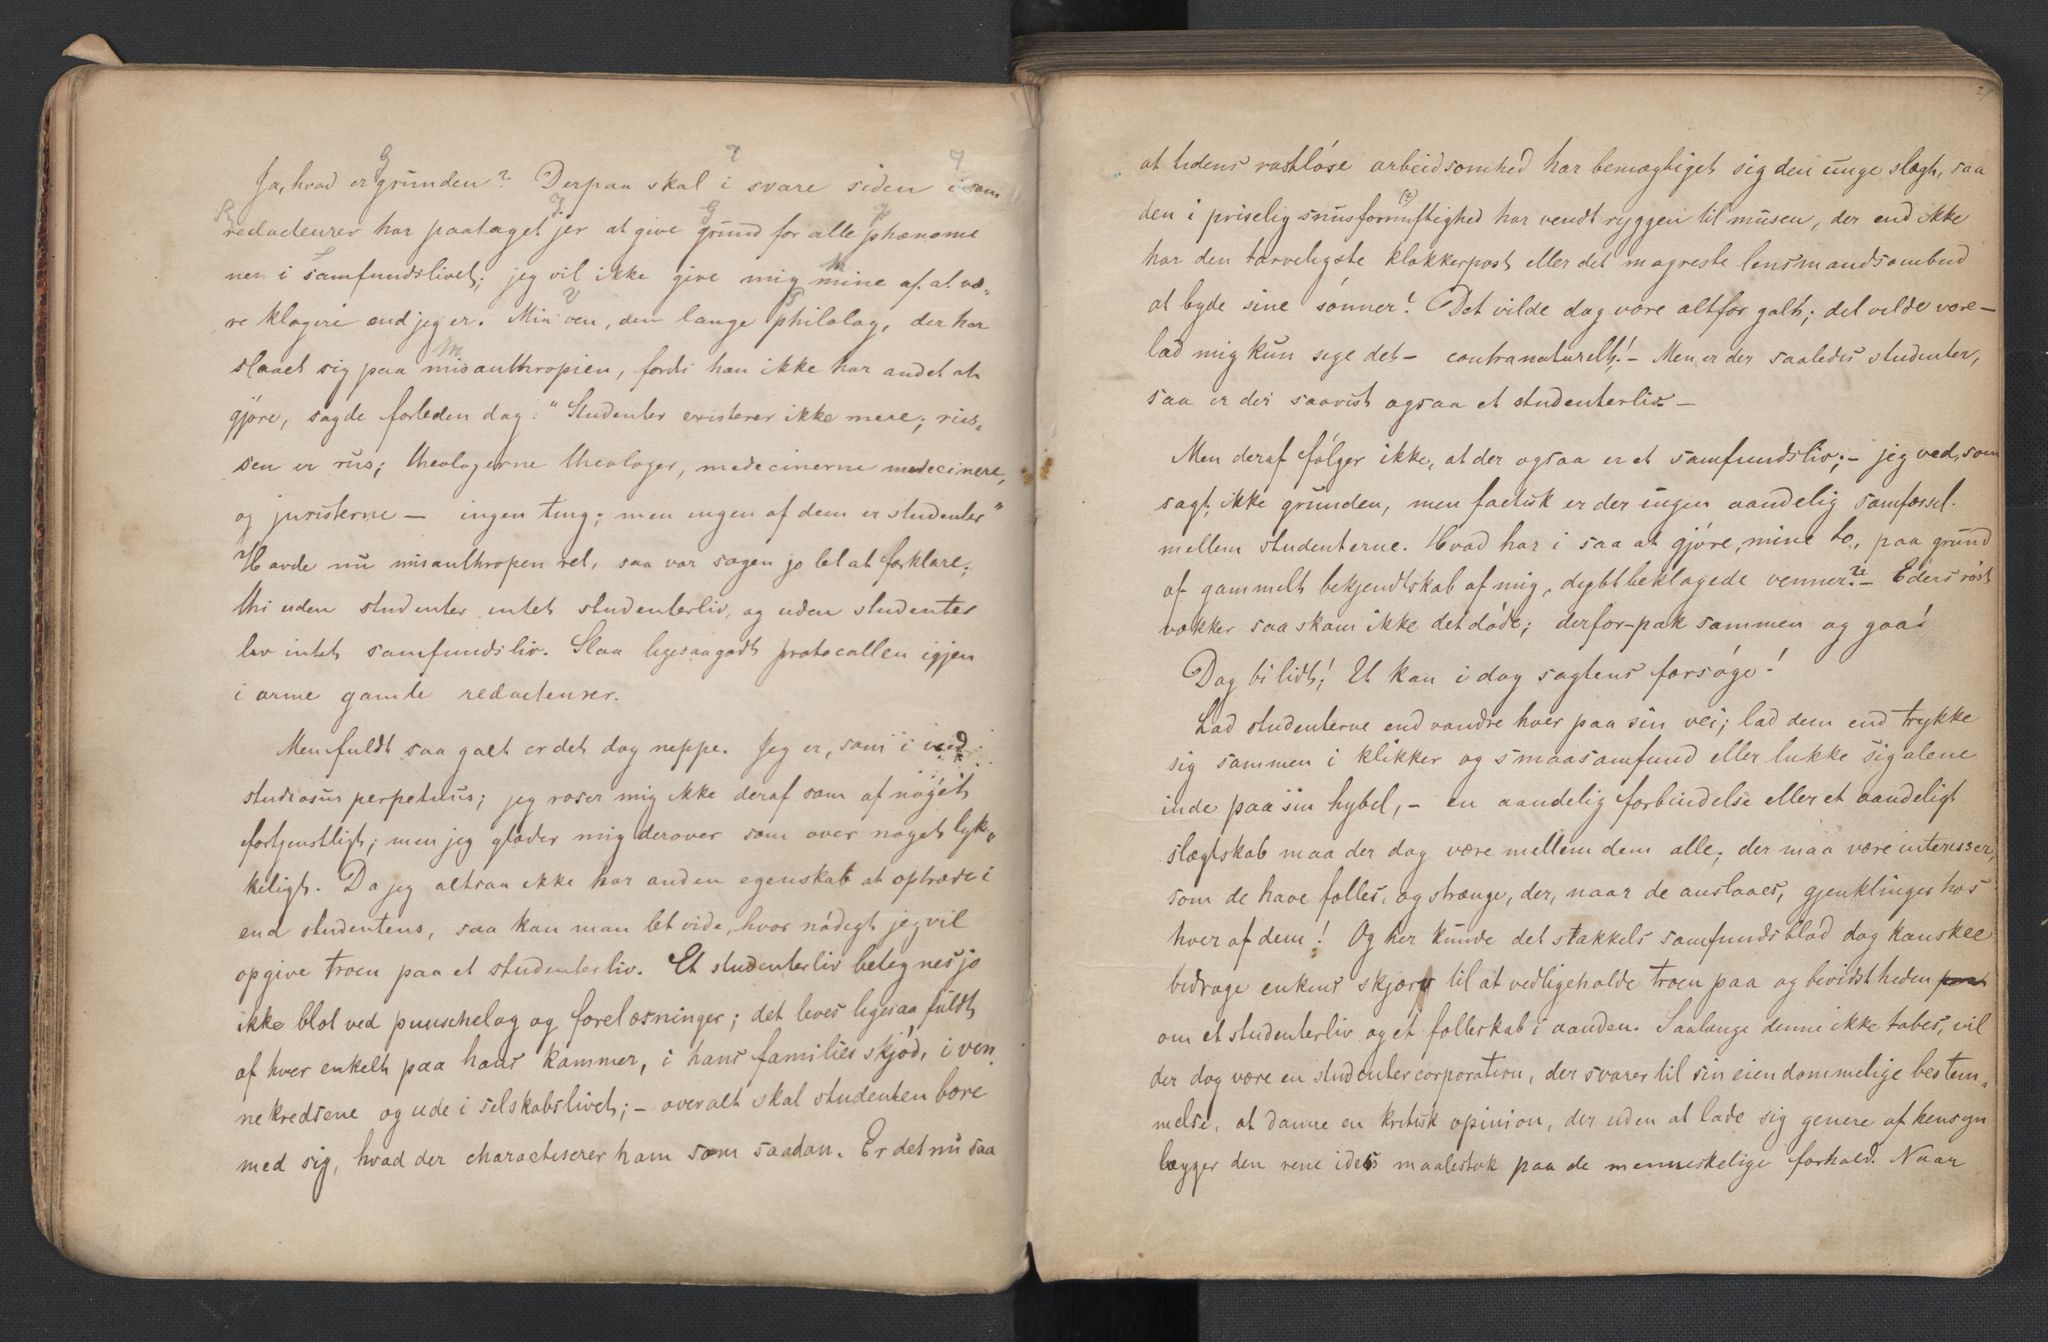 Ja, hvad er grunden? Derpaa skal i svare siden i som
redacteurer har paataget jer at give grund for alle phænome
ner i samfundslivet; jeg vil ikke give mig mine af at væ-
re klogere end jeg er. Min ven, den lange philolog, der har
slaaet sig paa misanthropien, fordi han ikke har andet at
gjøre, sagde forleden dag: "Studenter existerer ikke mere; rus-
sen er rus; theologerne theologer, medecinerne medecinere,
og juristerne — ingen ting; men ingen af dem er studenter"
Havde nu misanthropen ret, saa var sagen jo let at forklare;
thi uden studenter intet studenterliv, og uden studenter
liv intet samfundsliv. Slaa ligesaagodt protocollen igjen
i arme gamle redacteurer.
Men fuldt saa galt er det dog neppe. Jeg er, som i ved
studiosus perpetuus; jeg roser mig ikke deraf som af noget
fortjenstligt; men jeg glæder mig derover som over noget lyk-
keligt. Da jeg altsaa ikke har anden egenskab at optræde i
end studentens, saa kan man let vide, hvor nødigt jeg vil
opgive troen paa et studenterliv. Et studenterliv betegnes jo
ikke blot ved punschelag og forelæsninger; det leves ligesaa fuldt
af hver enkelt paa hans kammer, i hans families skjød, i ven
nekredsene og ude i selskabslivet; — overalt skal studenten bære
med sig, hvad der characteserer ham som saadan. Er det nu saa
21
at tidens rastløse arbeidsomhed har bemægtiget sig den unge slægt, saa
den i priselig snusfornuftighed har vendt ryggen til musen, der end ikke
har den tarveligste klokkerpost eller det magreste lensmandsombud
at byde sine sønner? Det vilde dog være altfor galt; det vilde være—
lad mig kun sige det — contranaturelt! — Men er der saaledes studenter,
saa er der saavist ogsaa et studenterliv. —
Men deraf følger ikke, at der ogsaa er et samfundsliv; — jeg ved, som
sagt, ikke grunden, men factisk er der ingen aandelig samfærsel
mellem studenterne. Hvad har i saa at gjøre, mine to, paa grund
af gammelt bekjendtskab af mig, dybt beklagede venner? — Eders røst
vækker saa skam ikke det døde; derfor — pak sammen og gaa!
Dog bi lidt! Et kan i dog sagtens forsøge!
Lad studenterne end vandre hver paa sin vei; lad dem end trykke
sig sammen i klikker og smaasamfund eller lukke sig alene
inde paa sin hybel, — en aandelig forbindelse eller et aandeligt
slægtskab maa der dog være mellem dem alle; der maa være interesser,
som de have fælles, og strænge, der, naar de anslaaes, gjenklinges hos
hver af dem! Og her kunde det stakkels samfundsblad dog kanskee
bidrage enkens skjærv til at vedligeholde troen paa og bevidstheden
om et studenterliv og et fælleskab i aanden. Saalænge denne ikke tabes, vil
der dog være en studentercorporation, der svarer til sin eiendommelige bestem-
melse, at danne en kritisk opinion, der uden at lade sig genere af hensyn
lægger den rene idees maalestok paa de menneskelige forhold. Naar